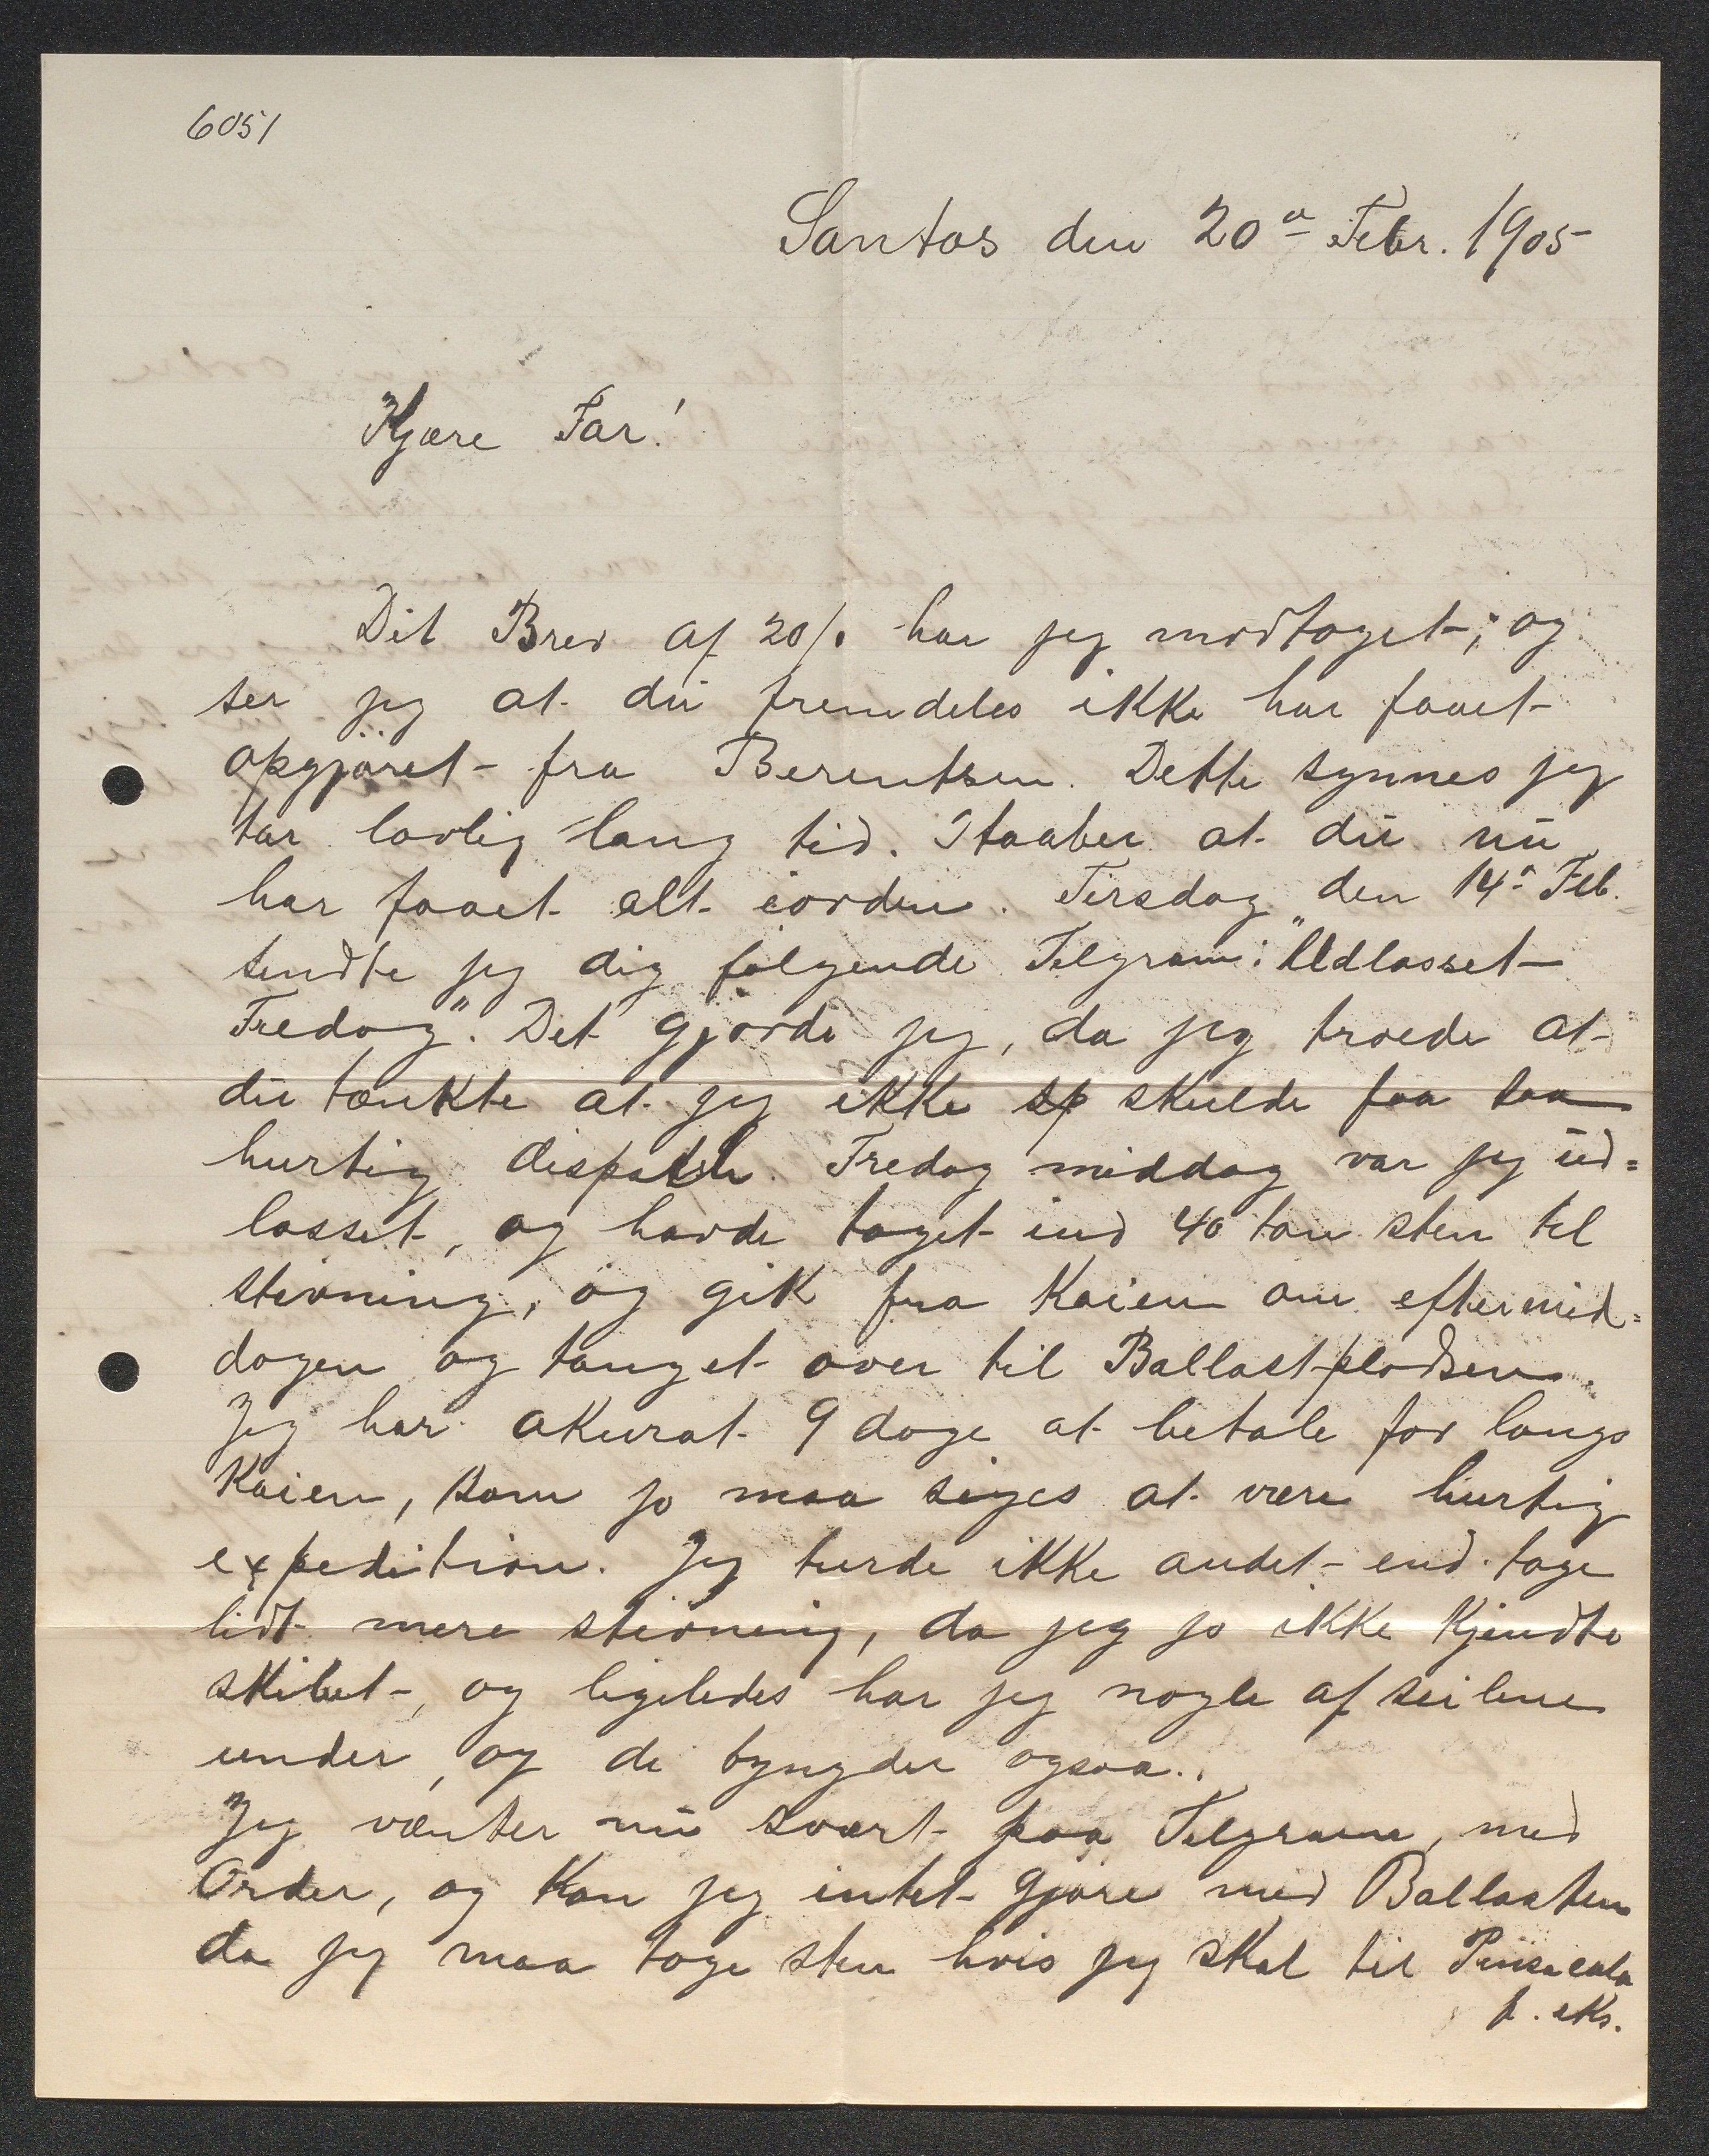 6051
Santos den 20de Febr. 1905
Kjære Far!
Dit Brev af 20/1 har jeg modtaget; og
ser jeg at du fremdeles ikke har faaet
opgjöret fra Berentsen. Dette synnes jeg
tar lovlig lang tid. Haaber at du nu
har faaet alt iorden. Tirsdag den 14de Feb.
sendte jeg dig følgende Telgram: "Udlosset
Fredag". Det gjorde jeg, da jeg troede at
du tænkte at jeg ikke sp skulde faa saa
hurtig dispatch. Fredag middag var jeg ud=
losset, og havde taget ind 40 ton sten til
stivning, og gik fra Kaien om eftermid=
dagen og tauget over til Ballastpladsen.
Jeg har akurat 9 dage at betale for langs
Kaien, som jo maa siges at være hurtig
expedition. Jeg turde ikke andet end tage
lidt mere stivning, da jeg jo ikke kjendte
skibet, og ligeledes har jeg nogle af seilene
under, og de tyngder ogsaa.
Jeg vænter nu svært paa Telgram, med
Order, og kan jeg intet gjøre med Ballasten
da jeg maa tage sten hvis jeg skal til Pensacola
f. eks.